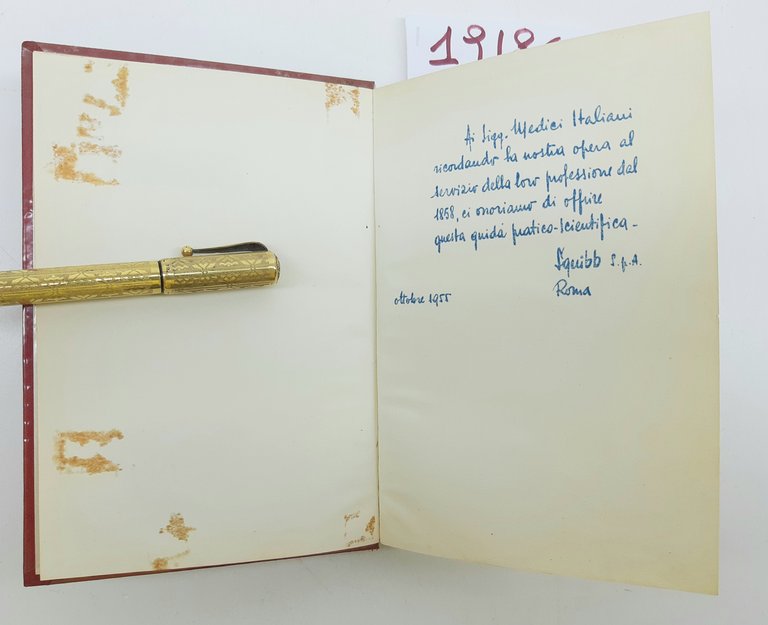 1918
Ai Sigg. Medici Italiani
ricordando la nostra opera al
servizio della loro professione dal
1858, ci onoriamo di offrire
questa guida pratico-scientifica -
Squibb S.p.A.
Roma
ottobre 1955